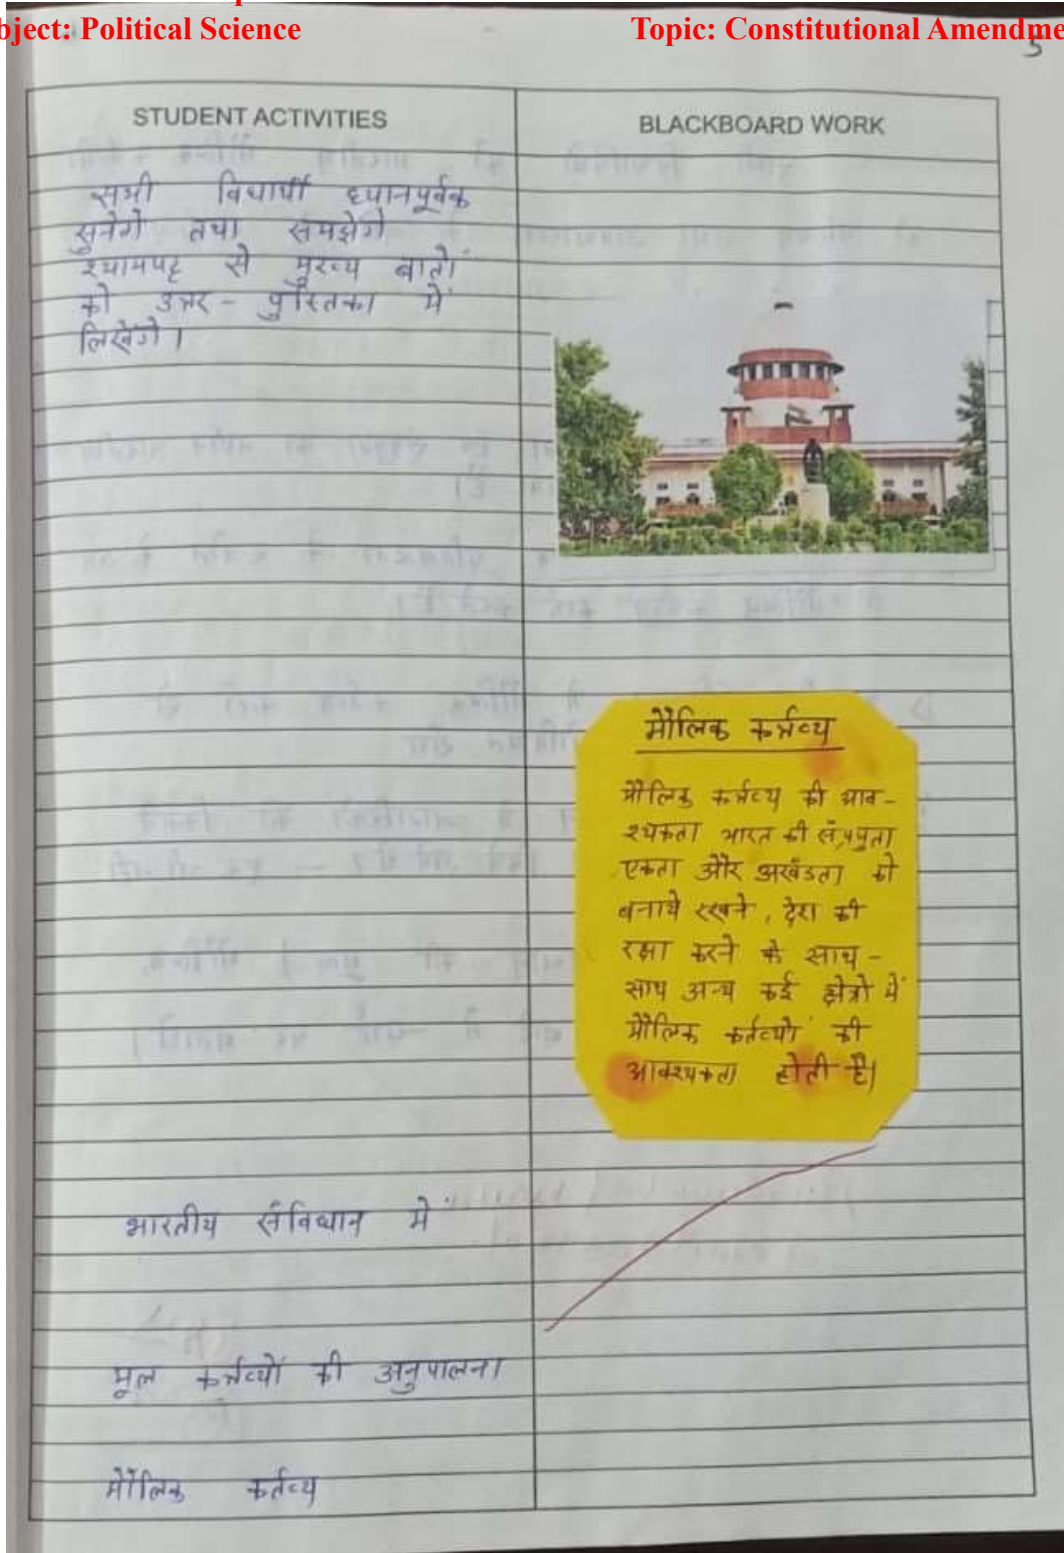 bject: Political Science
Topic: Constitutional Amendme
5
STUDENT ACTIVITIES
सभी विद्यार्थी ध्यानपूर्वक
सुनेगे तथा समझेगे
श्यामपट्ट से मुख्य बातों
को उत्तर - पुस्तिका में
लिखेंगे।
भारतीय संविधान में
मूल कर्त्तव्यों की अनुपालना
मौलिक कर्तव्य
BLACKBOARD WORK
मौलिक कर्त्तव्य
मौलिक कर्त्तव्य की आव-
श्यकता भारत की संप्रभुता
एकता और अखंडता को
बनाये रखने, देश की
रक्षा करने के साथ -
साथ अन्य कई क्षेत्रो में
मौलिक कर्तव्यों की
आवश्यकता होती है।